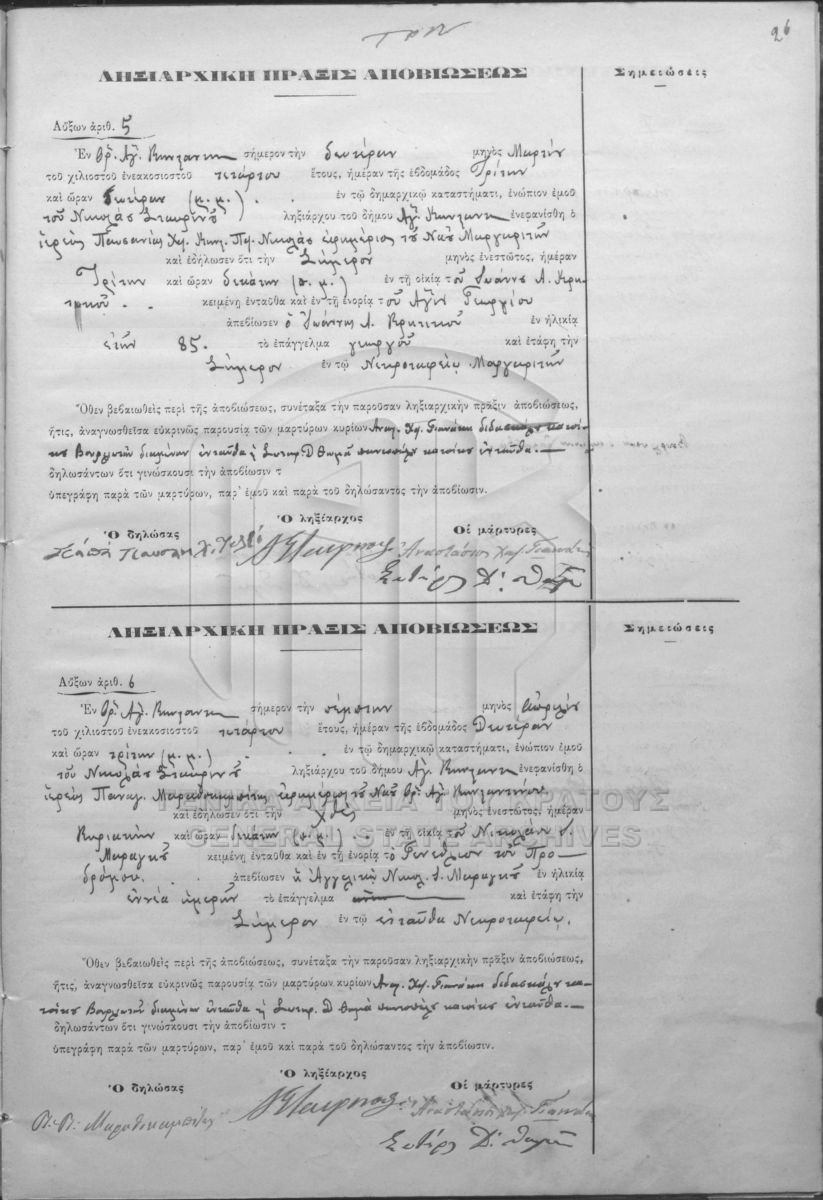 26
ΛΗΞΙΑΡΧΙΚΗ ΠΡΑΞΙΣ ΑΠΟΒΙΩΣΕΩΣ
Σημειώσεις
Αὔξων ἀριθ. 5
Ἐν Θρ. Ἁγ. Κωνσταντ. σήμερον τὴν δευτέραν μηνὸς Μαρτίου
τοῦ χιλιοστοῦ ἐνεακοσιοστοῦ τετάρτου ἔτους, ἡμέραν τῆς ἑβδομάδος Τρίτην
καὶ ὥραν δευτέραν (μ. μ.) ἐν τῷ δημαρχικῷ καταστήματι, ἐνώπιον ἐμοῦ
τοῦ Νικολάου Σταυρινοῦ ληξιάρχου τοῦ δήμου Ἁγ. Κωνσταντ. ἐνεφανίσθη ὁ
ἱερεὺς Παυσανίας Νικολάου ἐφημέριος τοῦ Ναοῦ Μαργαριτῶν
καὶ ἐδήλωσεν ὅτι τὴν Σήμερον μηνὸς ἐνεστῶτος, ἡμέραν
Τρίτην καὶ ὥραν δεκάτην (π. μ.) ἐν τῇ οἰκίᾳ τοῦ Ἰωάννου Α. Κρη-
τικοῦ κειμένῃ ἐνταῦθα καὶ ἐν τῇ ἐνορίᾳ τοῦ Ἁγίου Γεωργίου
ἀπεβίωσεν ὁ Ἰωάννης Α. Κρητικοῦ ἐν ἡλικίᾳ
ἐτῶν 85. τὸ ἐπάγγελμα γεωργοῦ καὶ ἐτάφη τὴν
Σήμερον ἐν τῷ Νεκροταφείῳ Μαργαριτῶν
Ὅθεν βεβαιωθεὶς περὶ τῆς ἀποβιώσεως, συνέταξα τὴν παροῦσαν ληξιαρχικὴν πρᾶξιν ἀποβιώσεως,
ἥτις, ἀναγνωσθεῖσα εὐκρινῶς παρουσίᾳ τῶν μαρτύρων κυρίων Ἀναγ. Χῃ. Γιανάκη διδασκάλου κατοί-
κου Βουρλιωτῶν διαμένων ἐνταῦθα ἢ Σωτηρ. Δ Θωμᾶ κατοίκου ἐνταῦθα.
δηλωσάντων ὅτι γινώσκουσι τὴν ἀποβίωσιν τ
ὑπεγράφη παρὰ τῶν μαρτύρων, παρ' ἐμοῦ καὶ παρὰ τοῦ δηλώσαντος τὴν ἀποβίωσιν.
Ὁ δηλώσας
Ὁ ληξίαρχος
Οἱ μάρτυρες
Ν Σταυρινός
Ἀναστάσιος Χῃ. Γιανάκη
Σωτήρς Δ. Θωμᾶ
ΛΗΞΙΑΡΧΙΚΗ ΠΡΑΞΙΣ ΑΠΟΒΙΩΣΕΩΣ
Σημειώσεις
Αὔξων ἀριθ. 6
Ἐν Θρ. Ἁγ. Κωνσταντ. σήμερον τὴν πέμπτην μηνὸς Ἀπριλίου
τοῦ χιλιοστοῦ ἐνεακοσιοστοῦ τετάρτου ἔτους, ἡμέραν τῆς ἑβδομάδος Δευτέραν
καὶ ὥραν τρίτην (μ. μ.) ἐν τῷ δημαρχικῷ καταστήματι, ἐνώπιον ἐμοῦ
τοῦ Νικολάου Σταυρινοῦ ληξιάρχου τοῦ δήμου Ἁγ. Κωνσταντ. ἐνεφανίσθη ὁ
ἱερεὺς Παναγ. Μαραθοκαμπίτης ἐφημέριος τοῦ Ναοῦ Θρ. Ἁγ. Κωνσταντίνου
ΓΕΝΙΚΑ ΑΡΧΕΙΑ ΤΟΥ ΚΡΑΤΟΥΣ
καὶ ἐδήλωσεν ὅτι τὴν χθὲς μηνὸς ἐνεστῶτος, ἡμέραν
GENERAL STATE ARCHIVES
Κυριακὴν καὶ ὥραν δεκάτην (π. μ.) ἐν τῇ οἰκίᾳ τοῦ Νικολάου Δ.
Μαραγκοῦ κειμένῃ ἐνταῦθα καὶ ἐν τῇ ἐνορίᾳ τὸ Γενέθλιον τοῦ Προ-
δρόμου. ἀπεβίωσεν ἡ Ἀγγελικὴ Νικολ. Δ. Μαραγκοῦ ἐν ἡλικίᾳ
ἐννέα ἡμερῶν τὸ ἐπάγγελμα καὶ ἐτάφη τὴν
Σήμερον ἐν τῷ ἐνταῦθα Νεκροταφείῳ.
Ὅθεν βεβαιωθεὶς περὶ τῆς ἀποβιώσεως, συνέταξα τὴν παροῦσαν ληξιαρχικὴν πρᾶξιν ἀποβιώσεως,
ἥτις, ἀναγνωσθεῖσα εὐκρινῶς παρουσίᾳ τῶν μαρτύρων κυρίων Ἀναγ. Χῃ. Γιανάκη διδασκάλου κα-
τοίκου Βουρλιωτῶν διαμένων ἐνταῦθα ἢ Σωτηρ. Δ Θωμᾶ κατοίκου ἐνταῦθα.
δηλωσάντων ὅτι γινώσκουσι τὴν ἀποβίωσιν τ
ὑπεγράφη παρὰ τῶν μαρτύρων, παρ' ἐμοῦ καὶ παρὰ τοῦ δηλώσαντος τὴν ἀποβίωσιν.
Ὁ δηλώσας
Ὁ ληξίαρχος
Οἱ μάρτυρες
Π. Π. Μαραθοκαμπίτης
Ν Σταυρινός
Ἀναστάσιος Χῃ. Γιανάκη
Σωτήρς Δ. Θωμᾶ